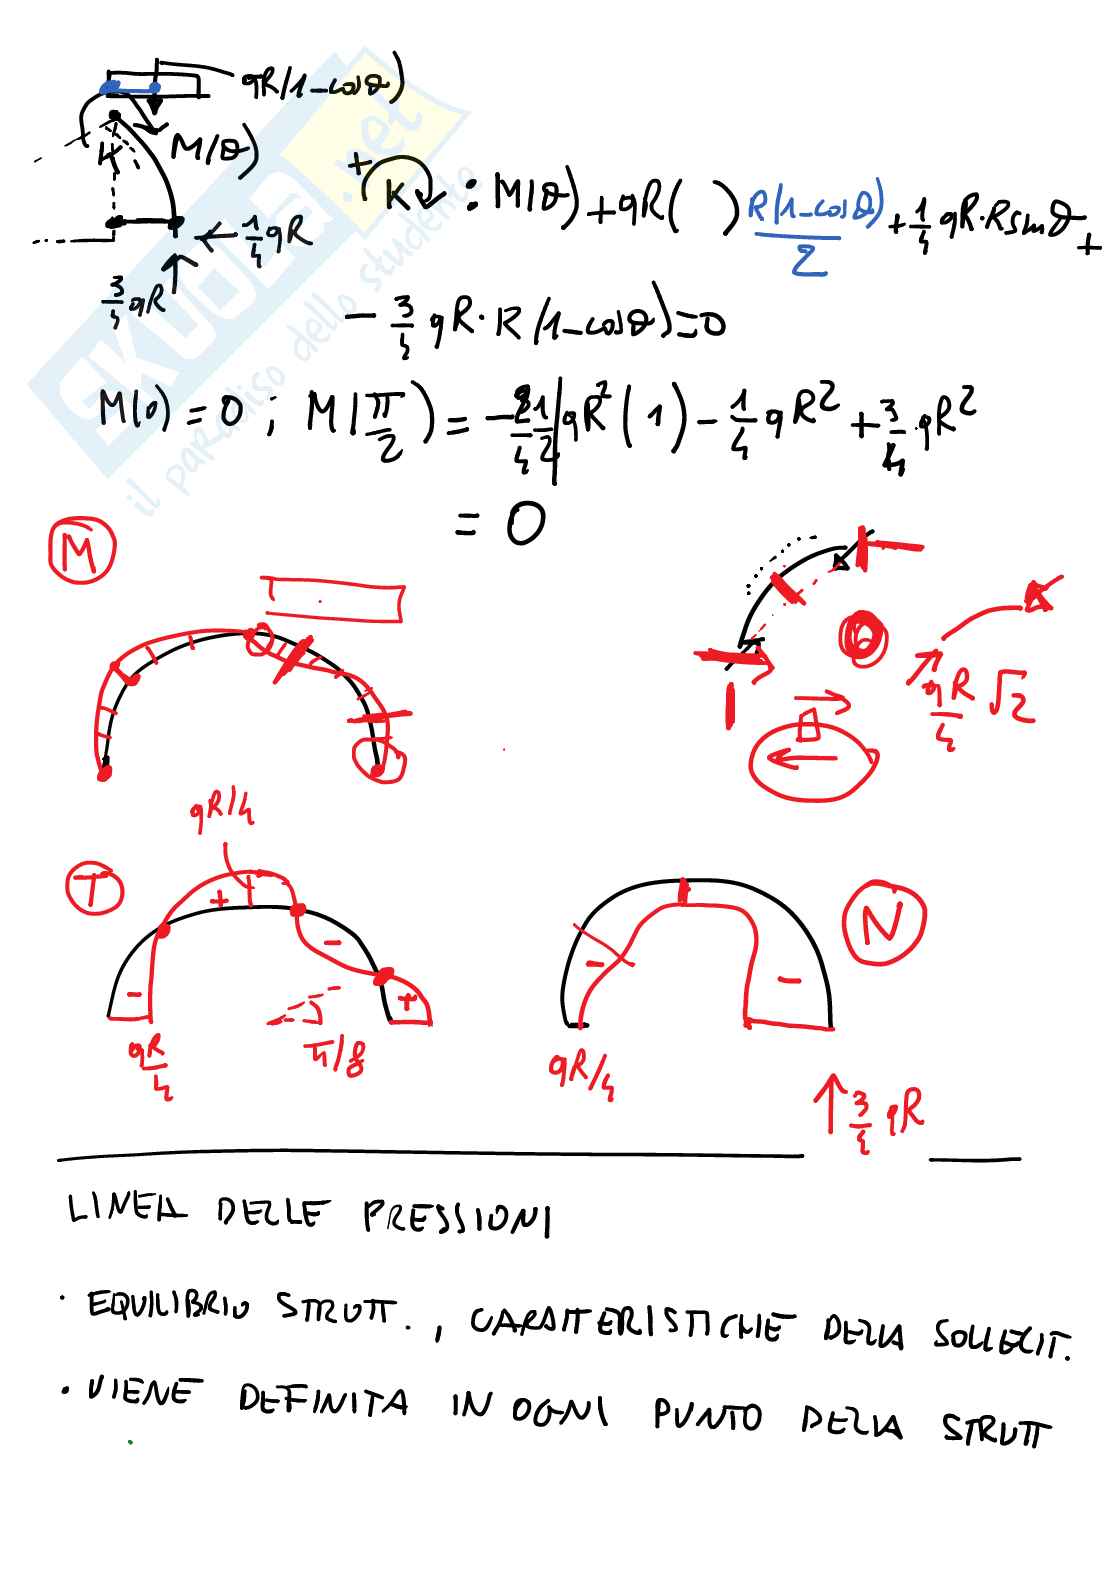 qR(1-cosθ)
K
M(θ)
1/4 qR
3/4 qR
+ K : M(θ) + qR( ) R(1-cosθ)/2 + 1/4 qR·R sinθ +
- 3/4 qR · R(1-cosθ) = 0
M(0) = 0 ; M(π/2) = - 1/2 qR² (1) - 1/4 qR² + 3/4 qR²
= 0
M
qR/4 √2
qR/4
T
+
-
-
+
qR/4
π/8
N
-
-
qR/4
3/4 qR
LINEA DELLE PRESSIONI
· EQUILIBRIO STRUTT. , CARATTERISTICHE DELLA SOLLECIT.
· VIENE DEFINITA IN OGNI PUNTO DELLA STRUTT
SKUOLA.net
il paradiso dello studente